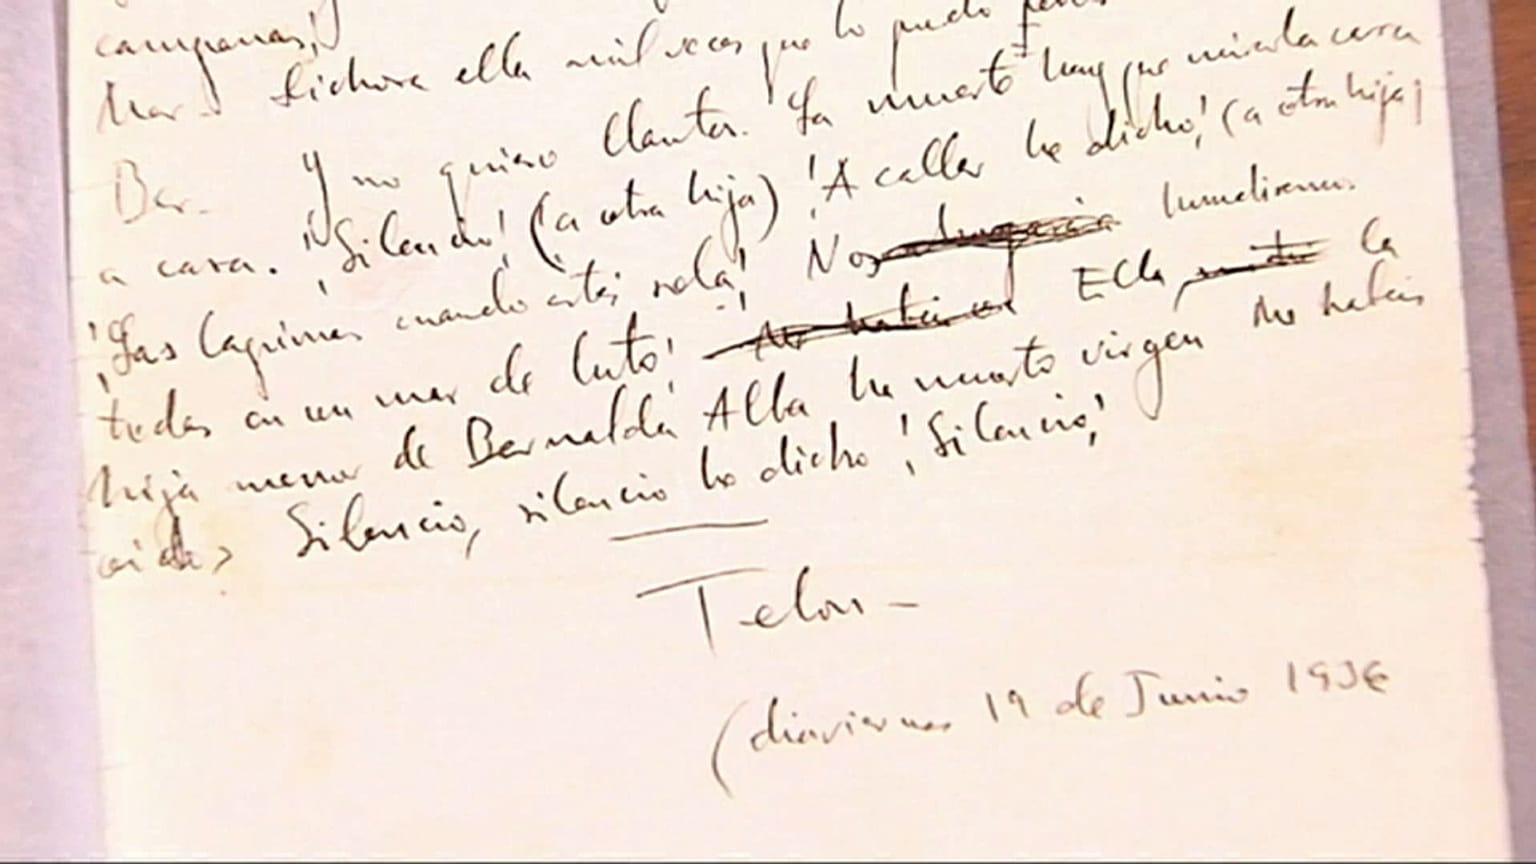 campanas!
Mar. Dichosa ella mil veces que lo pudo tener
Ber. Y no quiero llantos. La muerte hay que mirarla cara
a cara. ¡Silencio! (a otra hija) ¡A callar he dicho! (a otra hija)
¡Las lagrimas cuando estés sola! Nos hundiremos
todas en un mar de luto! No habeis oi Ella, la
hija menor de Bernalda Alba ha muerto virgen Me habeis
oido? Silencio, silencio he dicho ¡Silencio!
Telon-
(dia viernes 19 de Junio 1936